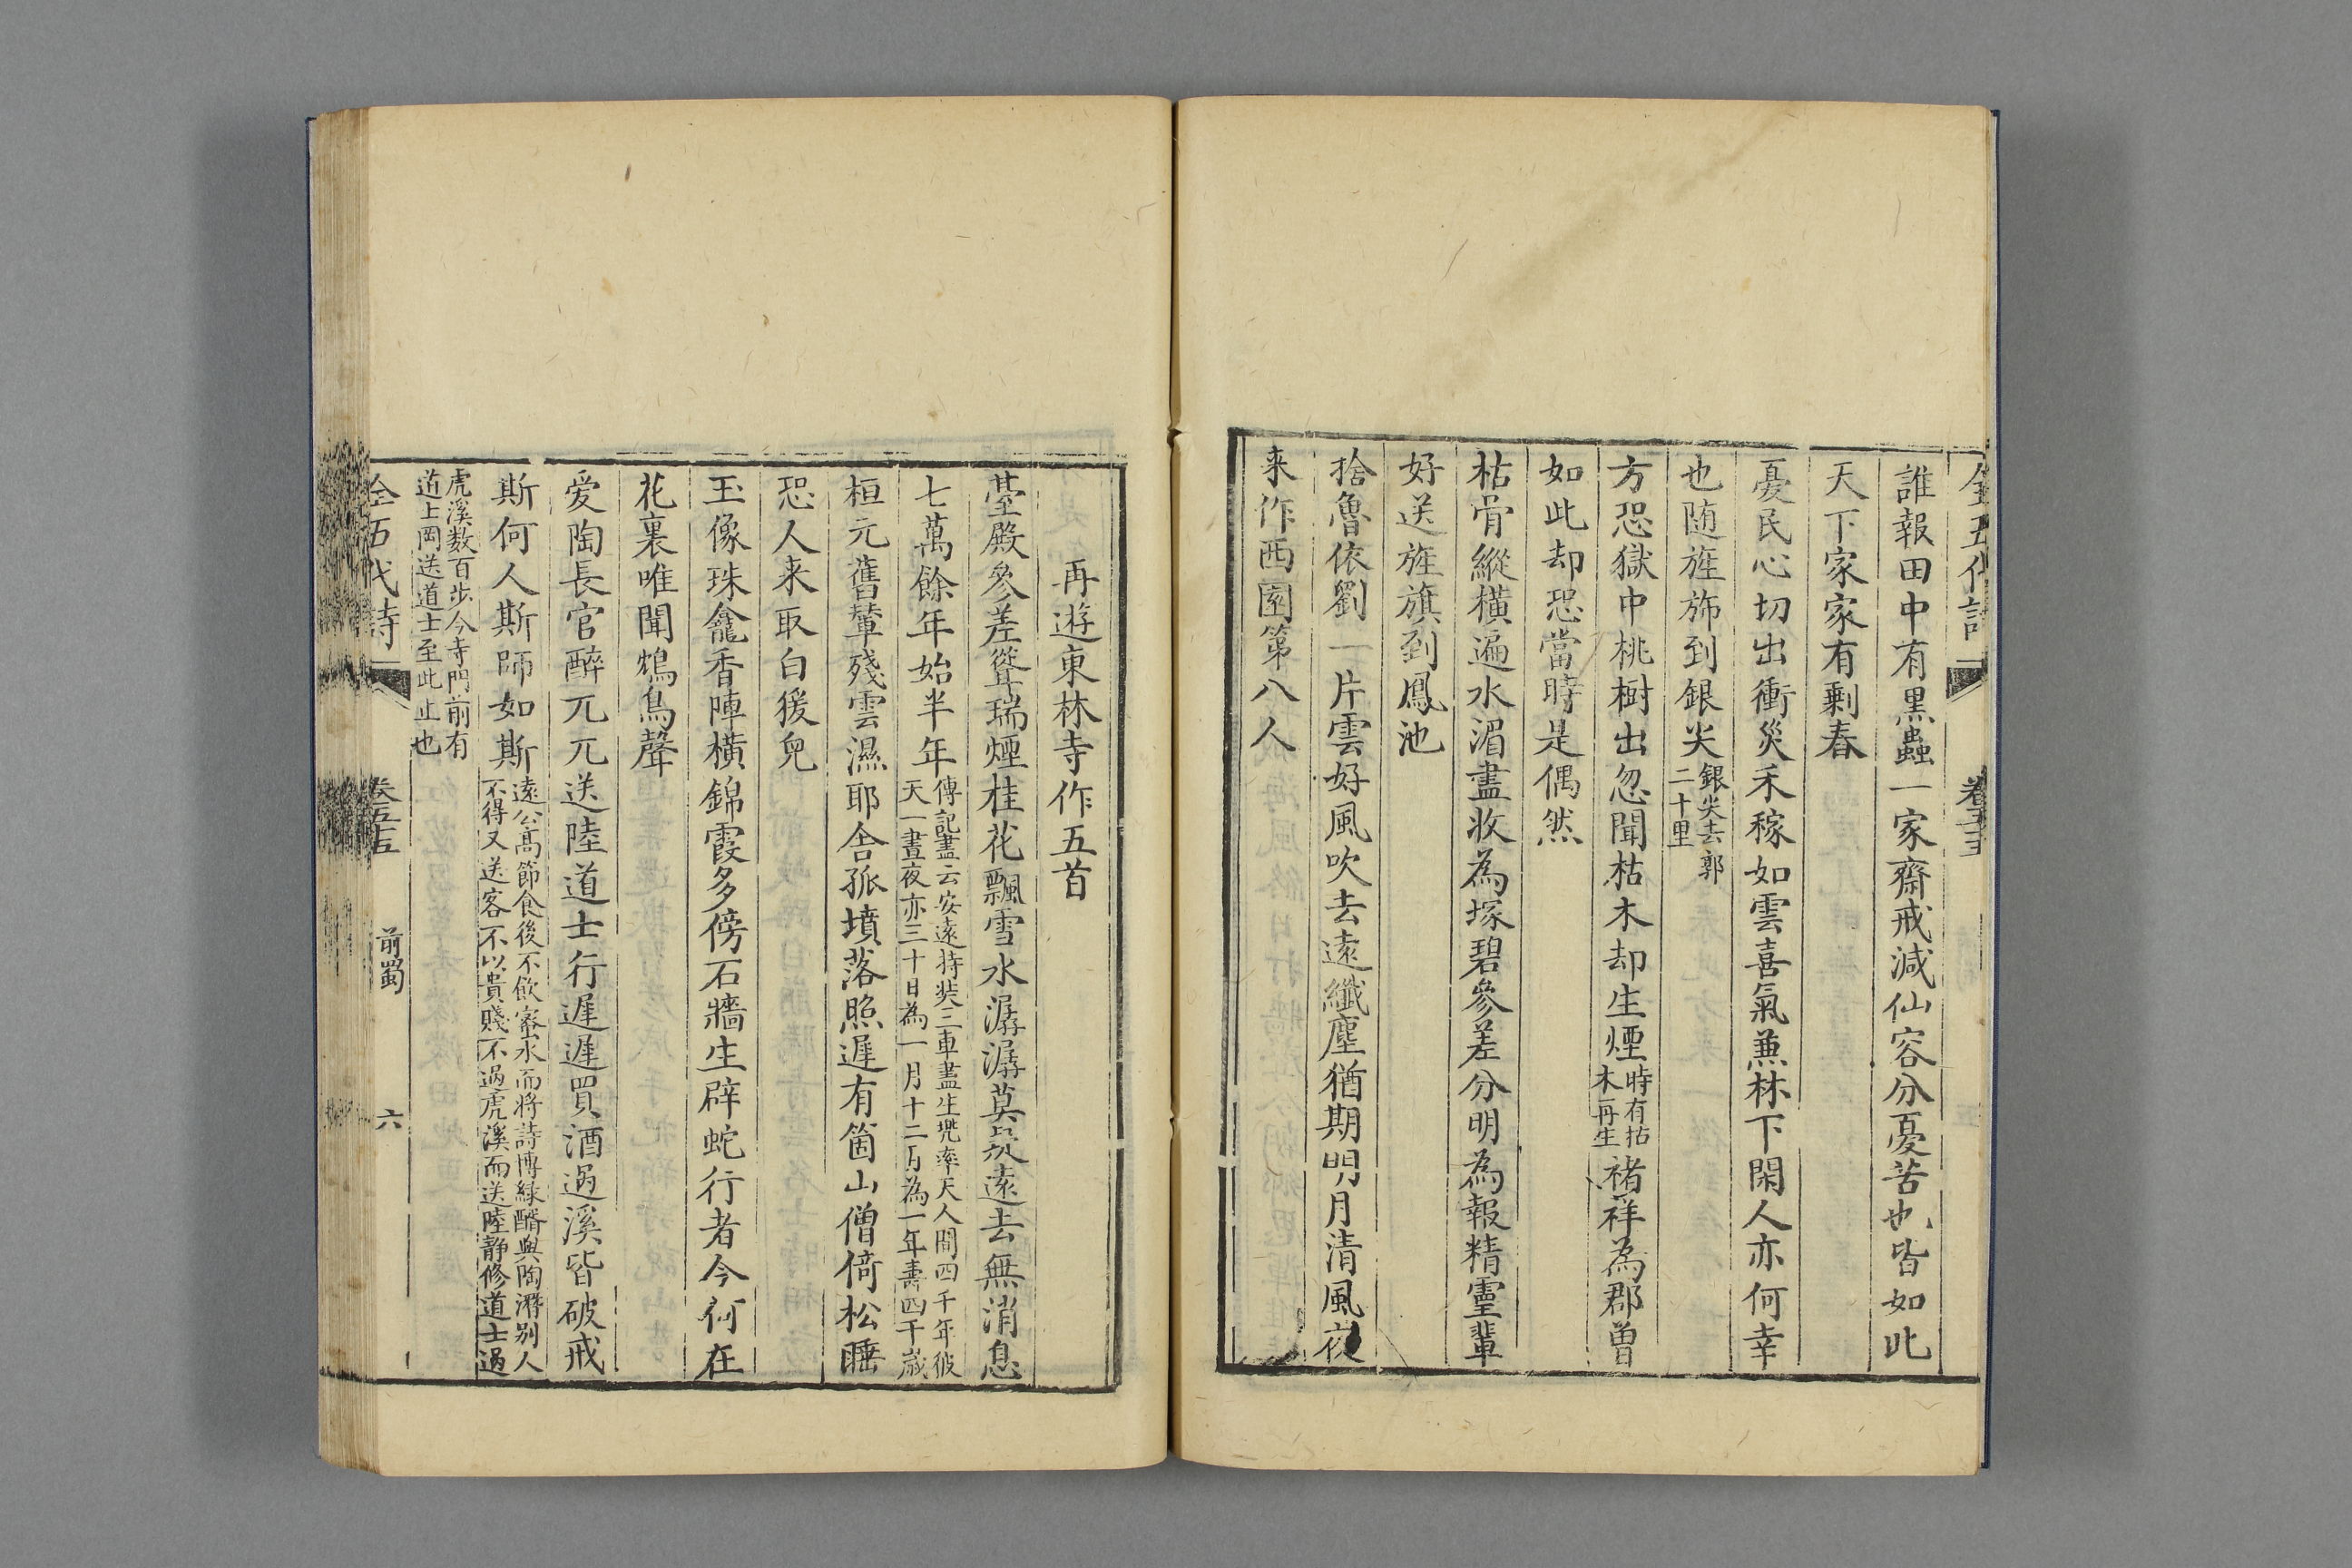 全五代詩
誰報田中有黒蟲一家齋戒減仙容分憂苦也皆如此
天下家家有剩春
憂民心切出衝災禾稼如雲喜氣兼林下閑人亦何幸
也随旌斾到銀尖銀尖去郭二十里
方恐獄中桃樹出忽聞枯木却生煙時有拈木再生褚祥為郡曾
如此却恐當時是偶然
枯骨縱橫遍水湄盡收為塚碧參差分明為報精靈輩
好送旌旗到鳳池
捨魯依劉一片雲好風吹去遠纖塵猶期明月清風夜
来作西園第八人
再遊東林寺作五首
䑓殿參差聳瑞煙桂花飄雪水潺潺莫疑遠去無消息
七萬餘年始半年傳記盡云安遠持裝三車盡生兠率天人間四千年彼天一晝夜亦三十日為一月十二月為一年壽四千歳
桓元舊輦殘雲濕耶舍孤墳落照遲有箇山僧倚松睡
恐人来取白猨兒
玉像珠龕香陣橫錦霞多傍石牆生辟蛇行者今何在
花裏唯聞鴆鳥聲
愛陶長官醉兀兀送陸道士行遲遲買酒過溪皆破戒
斯何人斯師如斯遠公高節食後不飲蜜水而將詩博緑醑與陶潛别人不得又送客不以貴賤不過虎溪而送陸静修道士過
虎溪数百步今寺門前有道上岡送道士至此止也
全五代詩
前蜀
六